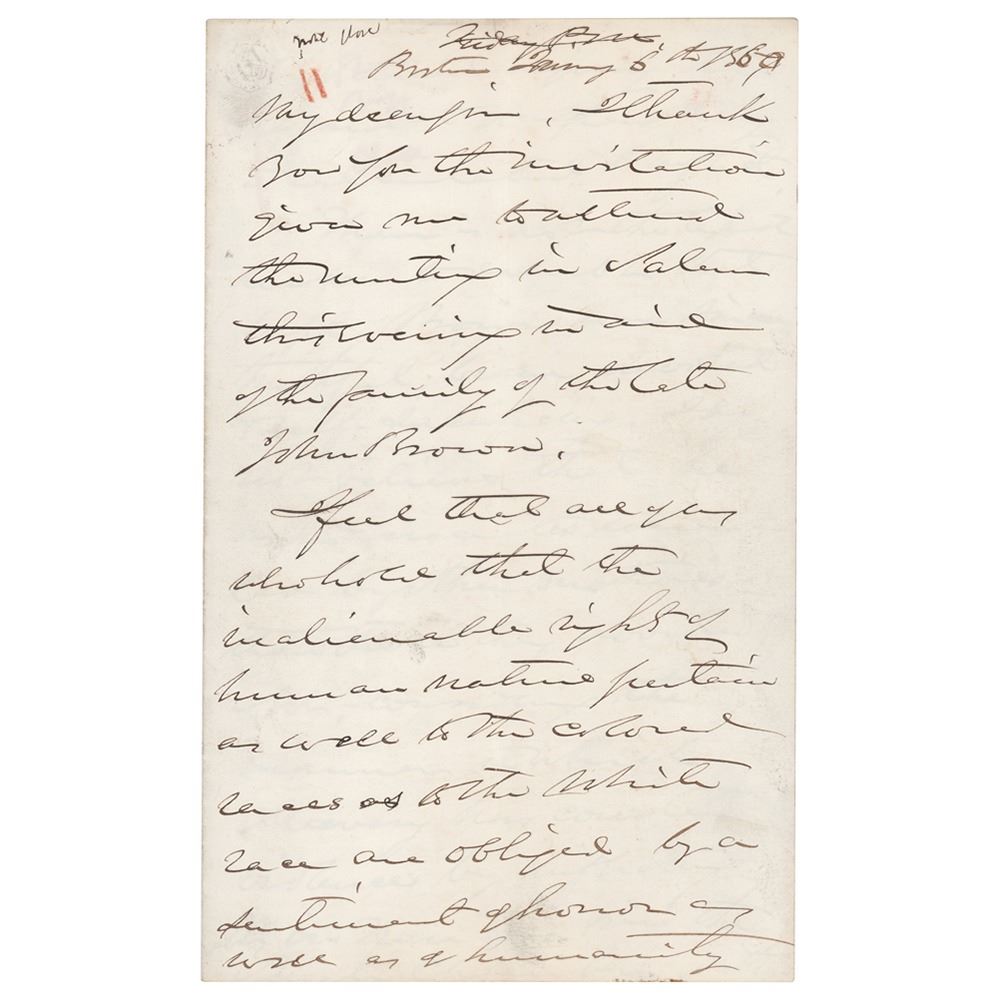 Boston January 6th 1860
My dear sir, I thank
you for the invitation
given me to attend
the meeting in Salem
this evening in aid
of the family of the late
John Brown.
I feel that all of us
who hold that the
inalienable rights of
human nature pertain
as well to the colored
races as to the white
race are obliged by a
sentiment of honor as
well as of humanity